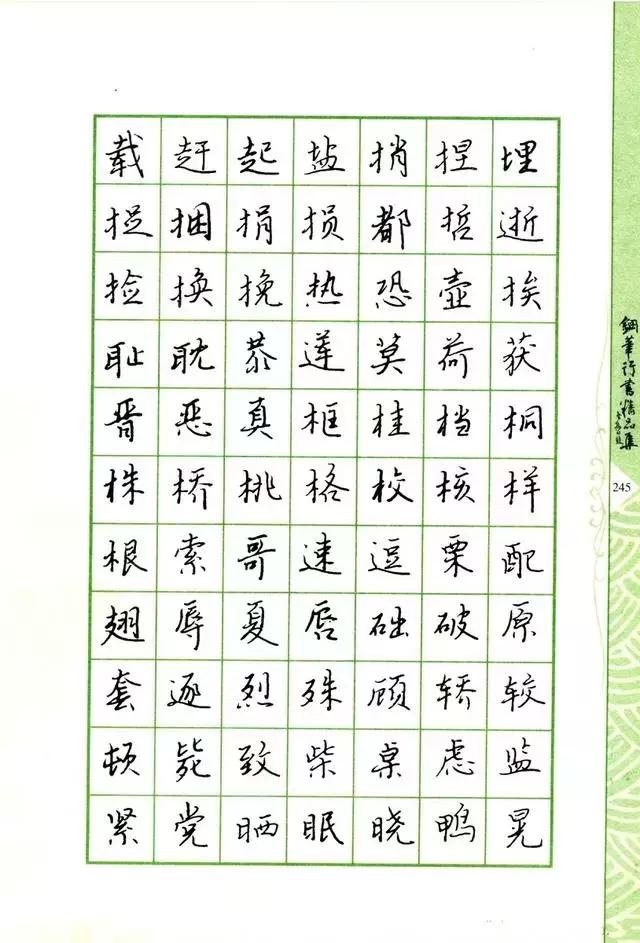 载赶起盐捎捏埋
捉捆捐损都哲逝
捡换挽热恐壶挨
耻耽恭莲莫荷获
晋恶真框桂档桐
株桥桃格校核样
根索哥速逗栗配
翅辱夏唇础破原
套逐烈殊顾轿较
顿毙致柴桌虑监
紧党晒眠晓鸭晃
钢笔行书精品集
245